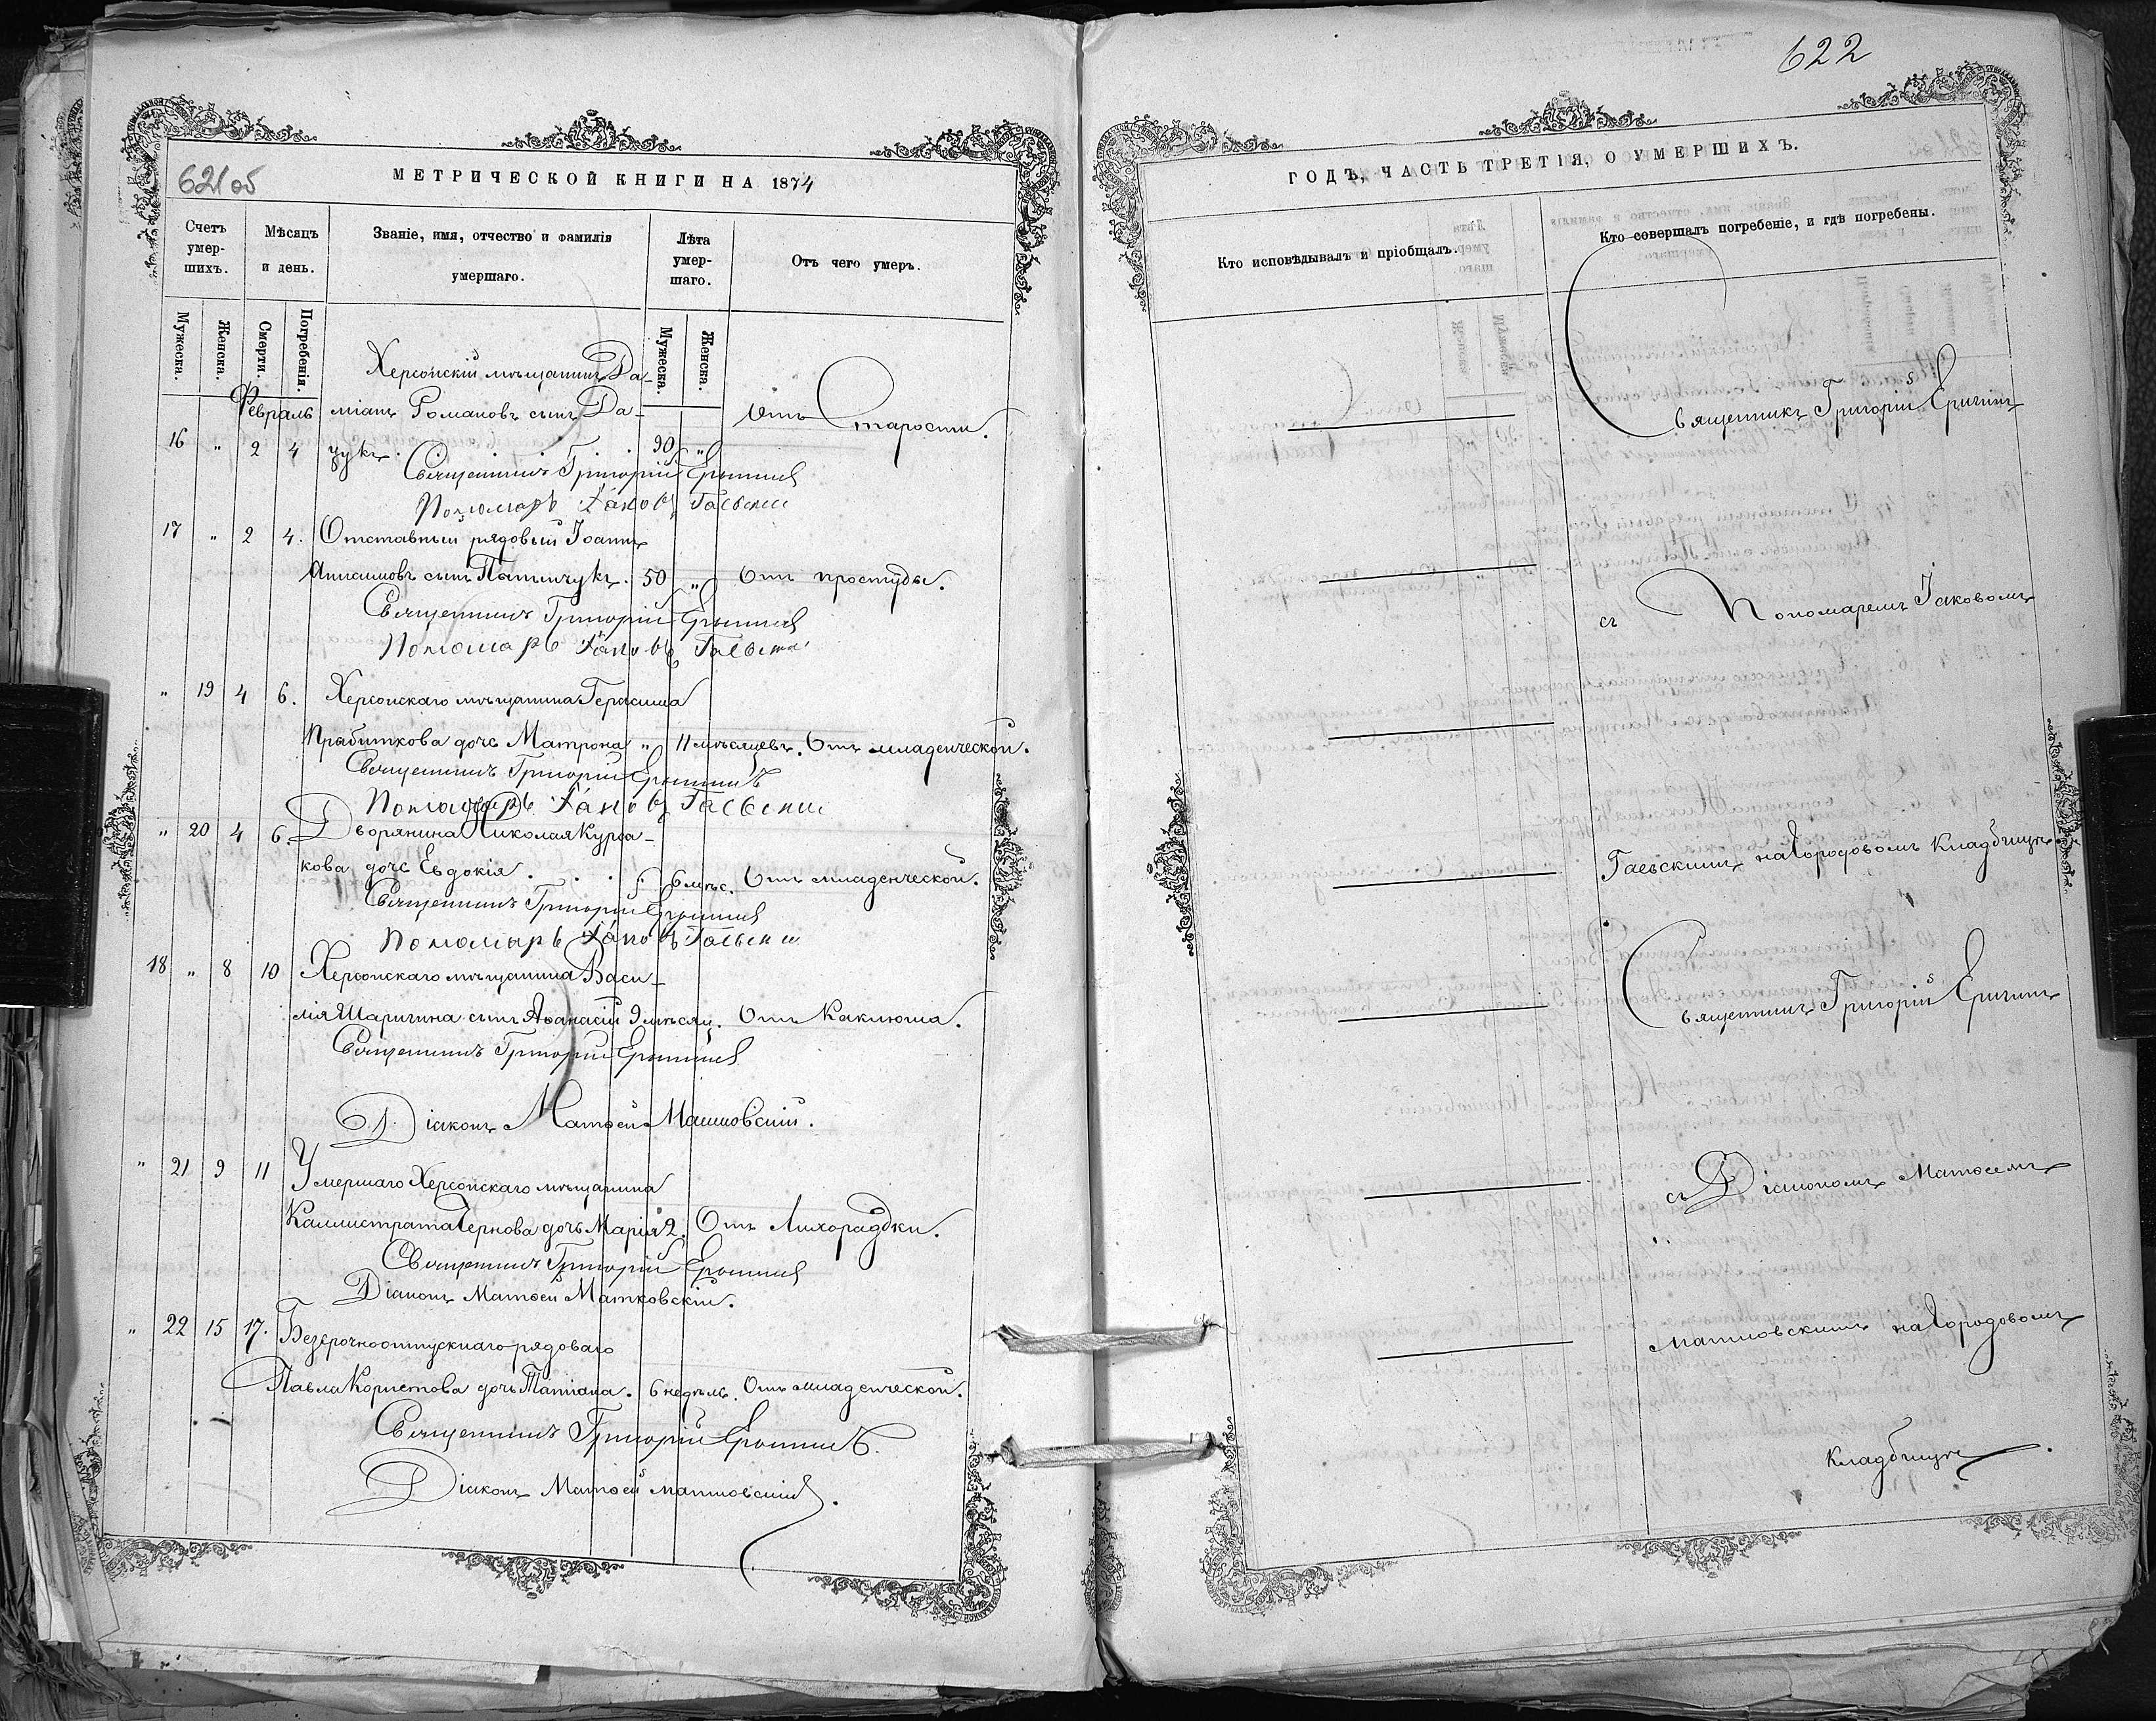 622
621 об
МЕТРИЧЕСКОЙ КНИГИ НА 1874
Счетъ умер-шихъ.
Мѣсяцъ и день.
Званіе, имя, отчество и фамилія умершаго.
Лѣта умер-шаго.
Отъ чего умеръ.
Мужеска.
Женска.
Смерти.
Погребенія.
Мужеска
Женска.
Февраль
Херсонскій мѣщанинъ Да-
міанъ Романовъ сынъ Да-
Отъ Старости.
16 " 2 4 цукъ . . . 90 "
Священникъ Григорій
Пономарь Іаковъ Гаевскій
17 " 2 4. Отставный рядовый Іоаннъ
сынъ 50 " Отъ простуды.
Священникъ Григорій
Пономарь Іаковъ Гаевскій
" 19 4 6. Херсонскаго мѣщанина Герасима
Прабиткова дочь Матрона " 11 мѣсяцевъ. Отъ младенческой.
Священникъ Григорій
Пономарь Іаковъ Гаевскій
" 20 4 6. Дворянина Николая Курса-
кова дочь Евдокія . . . 6 мѣс. Отъ младенческой.
Священникъ Григорій
Пономарь Іаковъ Гаевскій
18 " 8 10 Херсонскаго мѣщанина Васи-
лія Шаригина сынъ Аѳанасій 9 мѣсяц. Отъ Каклюша.
Священникъ Григорій
Діаконъ Матѳей
" 21 9 11 Умершаго Херсонскаго мѣщанина
Каллистрата Чернова дочь Марія 2. Отъ Лихорадки.
Священникъ Григорій
Діаконъ Матѳей
" 22 15 17. Безсрочноотпускнаго рядоваго
Павла дочь Татіана. 6 недѣль. Отъ младенческой.
Священникъ Григорій
Діаконъ Матѳей
ГОДЪ, ЧАСТЬ ТРЕТІЯ, О УМЕРШИХЪ.
Кто исповѣдывалъ и пріобщалъ.
Кто совершалъ погребеніе, и гдѣ погребены.
Священникъ Григорій
съ Пономаремъ Іаковомъ
Гаевскимъ на Городовомъ Кладбищѣ
Священникъ Григорій
съ Діакономъ Матѳеемъ
на Городовомъ
Кладбищѣ.